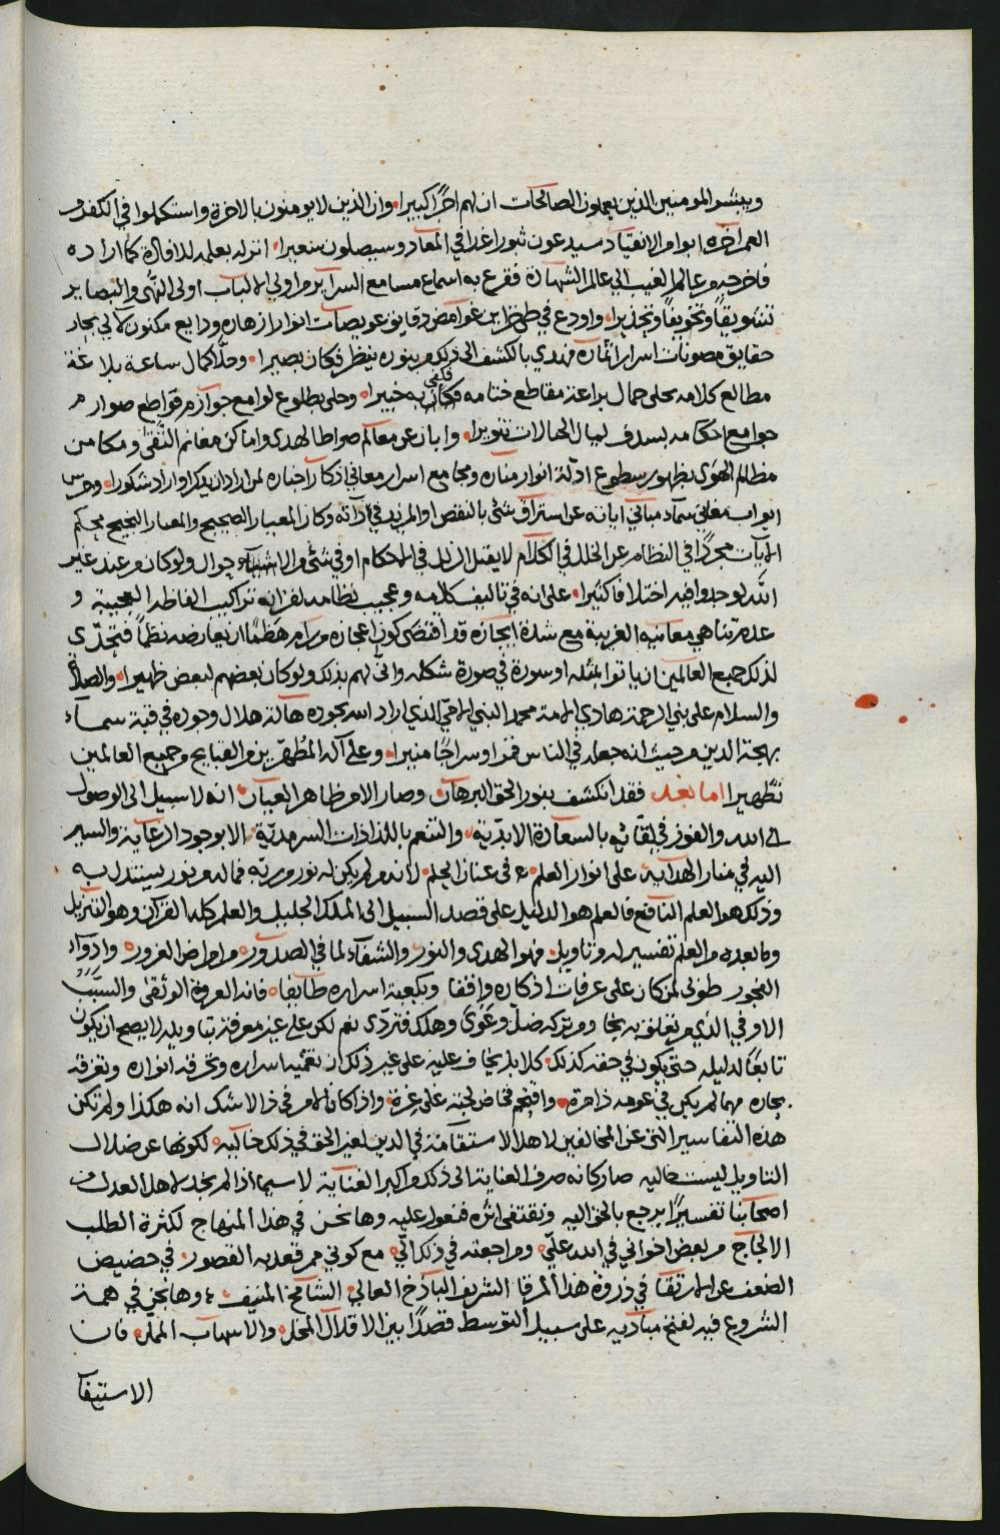 ويبشر المومنين الذين يعملون الصالحات ان لهم اجرا كبيرا وان الذين لا يومنون بالاخرة واستكملوا في الكفر
العمر اخره ابوا من الانقياد سيدعون ثبورا غدا في المعاد وسيصلون سعيرا انزله بعلمه للافادة كما اراده
فاخرجه من عالم الغيب الى عالم الشهادة فقرع به اسماع مسامع السراير من اولي الالباب اولى النهى والبصاير
تشويقا وتخويفا وتحذيرا واودع في طي خزاين غوامض دقايق عويصات انوار ازهاره ودايع مكنون لآلي بحار
حقايق مصونات اسرار اثماره فهدي بالكشف الى ذلك من بنوره ينظر فكان بصيرا وحلا كمال ساعة بلاغة
مطالع كلامه بحلى جمال براعة مقاطع ختامه فكان به خبيرا وحلى بطلوع لوامع جوازم قواطع صوارم
جوامع احكامه بسدف ليال الجهالات تنويرا وابان عن معالم صراط الهدى واماكن مغانم التقى ومكامن
مظالم الهوى بظهور سطوع ادلة انوار مناره ومجامع اسرار معاني اذكار اخباره لمن اراد ان يذكر او اراد شكورا وحرس
ابواب مغاني سماء مباني اياته عن استراق شئ بالنقص او المزيد في ذاته وكان المعيار الصحيح والمعيار النجيح محكم
الايات مجردا في النظام عن الخلل في الكلام لا يقبل الزلل في الاحكام او في شئ من الاشياء بحوال ولو كان من عند غير
الله لوجدوا فيه اختلافا كثيرا على انه في تاليف كلامه وعجيب نظامه لغرابة تراكيب الفاظه العجيبة و
عدم تناهي معانيه الغريبة مع شدة ايجازه قد اقتضى كون اعجازه من رام هضما ان يعارضه نظما فتحدى
لذلك جميع العالمين ان ياتوا بمثله او سورة في صورة شكله وانى لهم بذلك ولو كان بعضهم لبعض ظهيرا والصلاة
والسلام على نبي الرحمة هادي الامة محمد النبي الامي الذي اراد الله بجوده هالة هلال وجوده في قبة سماء
بهجة الدين من حيث انه جعله في الناس قمرا وسراجا منيرا وعلى آله المطهرين من القبايح وجميع العالمين
تطهيرا اما بعد فقد انكشف بنور الحق البرهان وصار الامر ظاهر العيان انه لا سبيل الى الوصول
الى الله والفوز في لقائه بالسعادة الابدية والتنعم باللذاذات السرمدية الا بوجود الرعاية والسير
اليه في منار الهداية على انوار العلم في عنان الحلم لانه من لم يكن له نور من ربه فما له من نور يستدل به
وذلك هو العلم النافع فالعلم هو الدليل على قصد السبيل الى الملك الجليل والعلم كله القرآن وهو التنزيل
وما بعده من العلم تفسير له وتاويل فهو الهدى والنور والشفاء لما في الصدور من امراض الغرور وادواء
الفجور طوبى لمن كان على عرفات اذكاره واقفا وبكعبة اسراره طائفا فانه العروة الوثقى والسبب
الاوفي الذي من تعلق به نجا ومن تركه ضل وغوى وهلك فتردى نعم لكن على غير معرفة بتاويله لا يصح ان يكون
تابعا لدليله حتى يكون في حقه كذلك كلا بل يخاف عليه على غير ذلك ان تعميه اسراره وتحرقه انواره وتغرقه
بحاره مهما لم يكن في عومه ذا مرة واقتحم فخاض لجته على غرة واذا كان الامر في ذا لا شك انه هكذا ولم تكن
هذه التفاسير التى عن المخالفين لاهل الاستقامة في الدين لغير الحق في ذلك خالية لكونها عن ضلال
التاويل ليست خاليه صار كانه صرف العناية الى ذلك من اكبر العناية لا سيما اذا لم نجد لاهل العدل من
اصحابنا تفسيرا يرجع بالحق اليه ونقتفى اثره فنعول عليه وها نحن في هذا المنهاج لكثرة الطلب
الالحاج من بعض اخواني في الله علي ومراجعته في ذلك الي مع كوني ممن قعد به القصور في حضيض
الضعف عن الارتقا في ذروة هذا المرقا الشريف الباذخ العالي الشامخ المنيف وها نحن في همة
الشروع فيه لفتح مباديه على سبيل التوسط قصدا بين الاقلال المخل والاسهاب الممل فان
الاستيفا